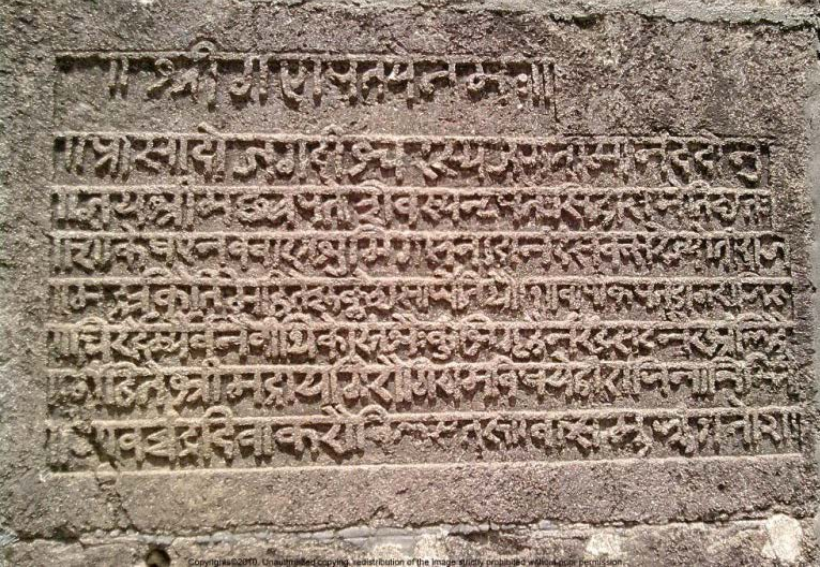 ॥ श्री गणपतये नमः ॥
॥ प्रासादो जगदीश्वरस्य जगतामानंददोनु
॥ ज्ञया श्रीमच्छत्रपतेः शिवस्य नृपतेः सिंहासने तिष्ठतः
॥ शाके षण्णवबाणभूमिगणनादानन्दसंवत्सरे ज्योतिराज
॥ मुहूर्तकीर्तिमहिते शुक्लेशसार्पे तिथौ ॥ वापीकूपतडागराजिरु
॥ चिरं रम्यं वनं वीथिका स्तंभैः कुंभिगृहैर्नरेन्द्रसदनैरभ्रंलिहै
श्रीमद्रायगिरौ गिरामविषये हीराजिना निर्मितो
॥ यावच्चंद्रदिवाकरौ विलसतस्तावत्समुज्जृंभते ॥
Copyrights©2010. Unauthorised copying, redistribution of the image strictly prohibited without prior permission.